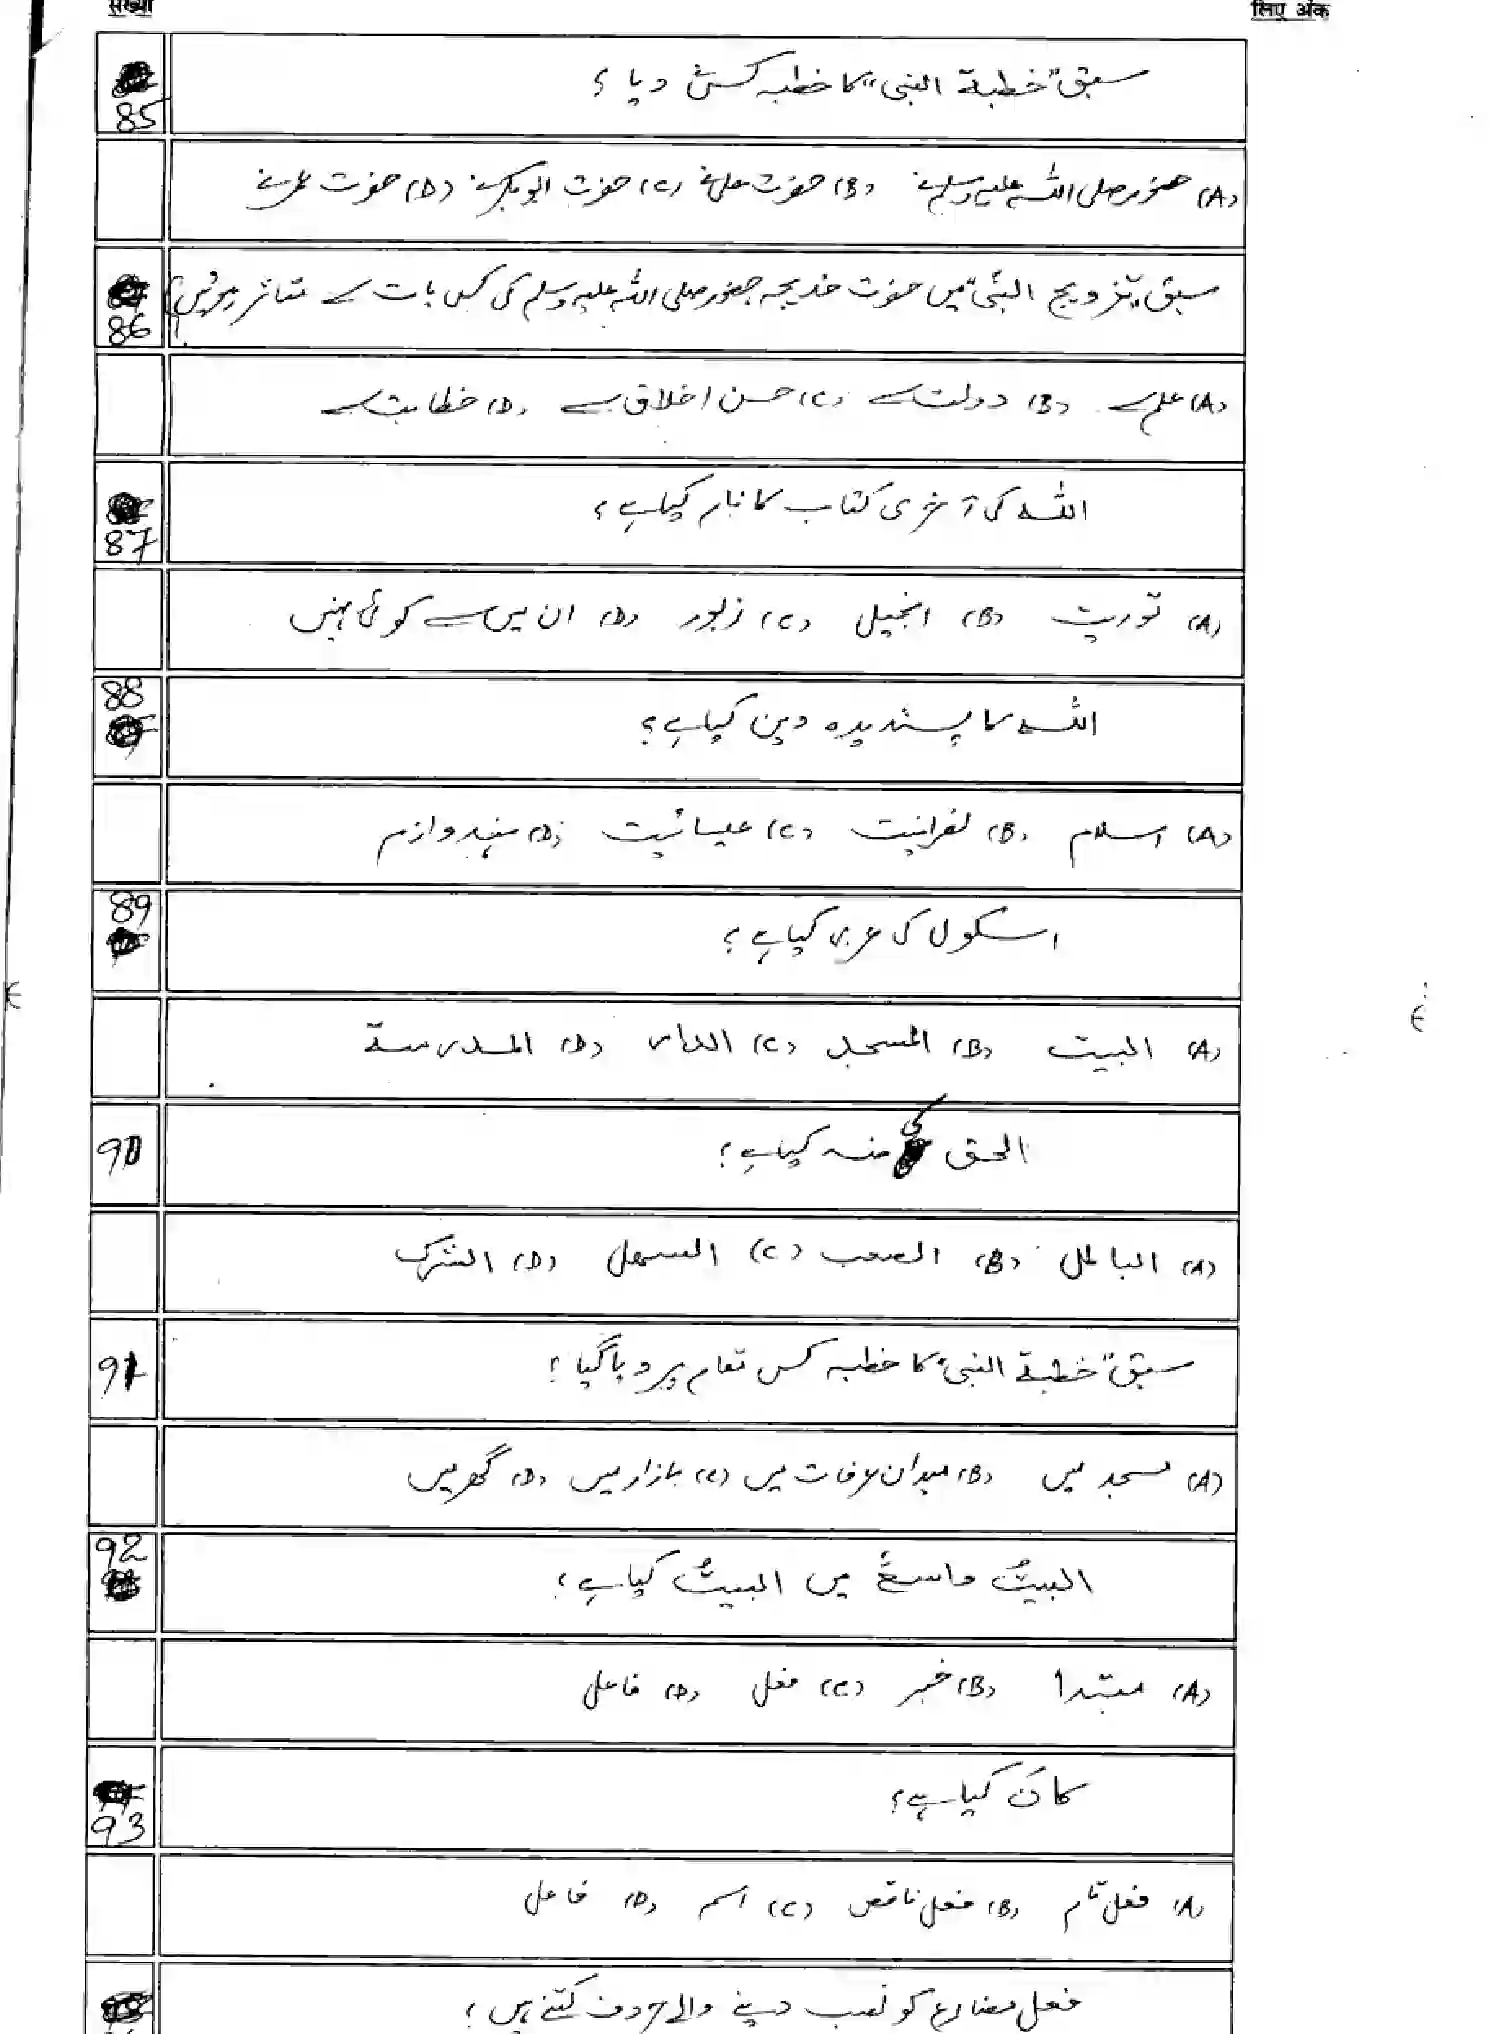 संख्या लिए अंक
85 سبق "خطبة النبی" کا خطبہ کس نے دیا ؟
(A) حضور صلی اللہ علیہ وسلم نے (B) حضرت علی نے (C) حضرت ابوبکر نے (D) حضرت عمر نے
86 سبق "تزویج النبی" میں حضرت خدیجہ حضور صلی اللہ علیہ وسلم کی کس بات سے متاثر ہوئیں؟
(A) علم سے (B) دولت سے (C) حسن اخلاق سے (D) خطابت سے
87 اللہ کی آخری کتاب کا نام کیا ہے ؟
(A) توریت (B) انجیل (C) زبور (D) ان میں سے کوئی نہیں
88 اللہ کا پسندیدہ دین کیا ہے ؟
(A) اسلام (B) نصرانیت (C) عیسائیت (D) ہندوازم
89 اسکول کی عربی کیا ہے ؟
(A) البیت (B) المسجد (C) الدار (D) المدرسة
90 الحق کی ضد کیا ہے ؟
(A) الباطل (B) الصعب (C) السهل (D) الشرک
91 سبق "خطبة النبی" کا خطبہ کس مقام پر دیا گیا ؟
(A) مسجد میں (B) میدان عرفات میں (C) بازار میں (D) گھر میں
92 البیتُ واسعٌ میں البیتُ کیا ہے ؟
(A) مبتدا (B) خبر (C) فعل (D) فاعل
93 کانَ کیا ہے ؟
(A) فعل تام (B) فعل ناقص (C) اسم (D) فاعل
فعل مضارع کو نصب دینے والے حروف کتنے ہیں ؟